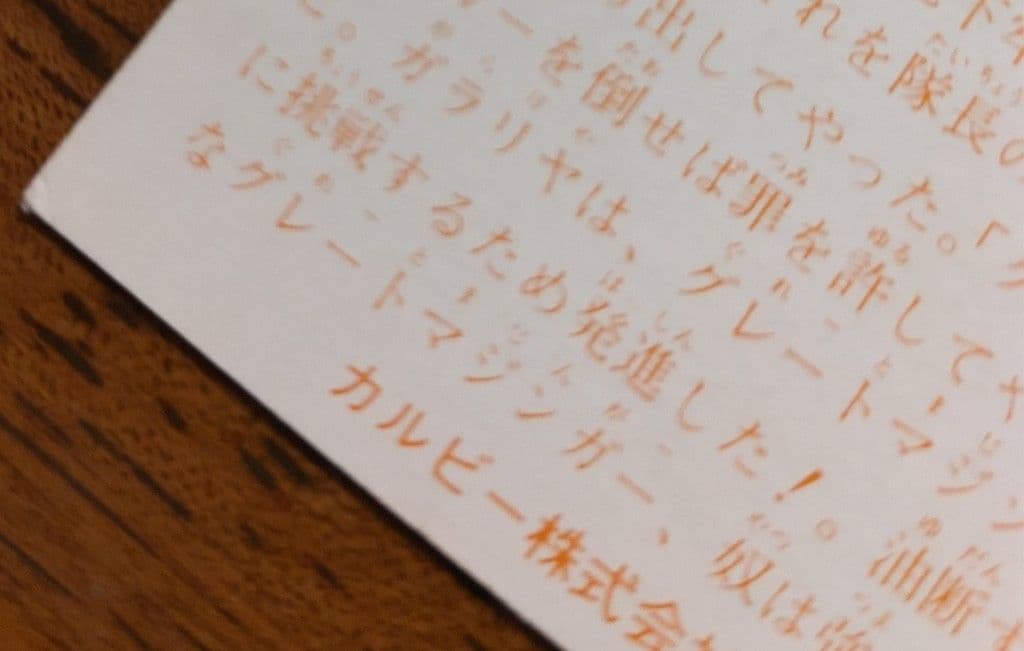 れを隊長の
出してやった。「グ
ーを倒せば罪を許してや
。ガラリヤは、グレートマジン
に挑戦するため発進した!。油断す
なグレートマジンガー、奴は強
カルビー株式会